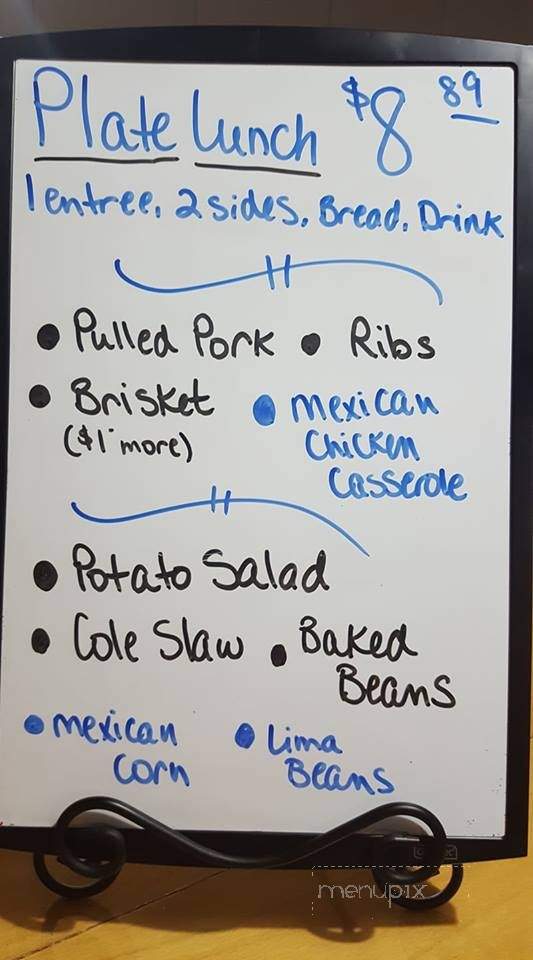 Plate Lunch $8 89
1 entree, 2 sides, Bread, Drink
• Pulled Pork • Ribs
• Brisket • Mexican
($1 more) Chicken
Casserole
• Potato Salad
• Cole Slaw • Baked
Beans
• Mexican • Lima
Corn Beans
menupix